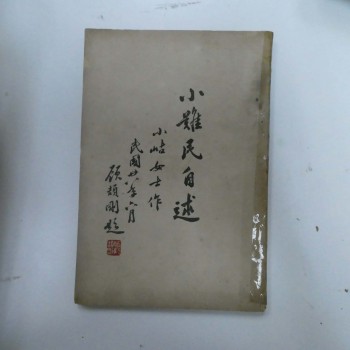 小難民自述
小岵女士作
民國廿八年六月
顧頡剛題